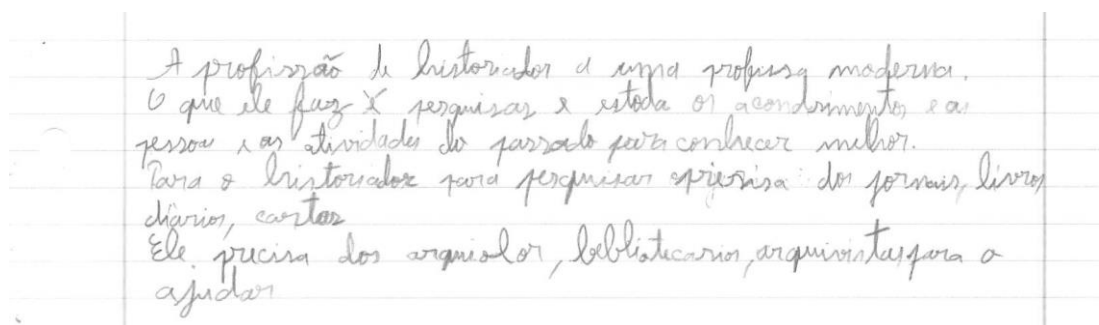 A profissão de historiador a uma profissa moderna.
O que ele faz é pesquisar e estoda os acondsimentos e as
pessoa e as atividades do passado para conhecer melhor.
Para o historiador para pesquisar epresisa dos jornais, livros
diários, cartas
Ele precisa dos arquiolor, bebliotecarios, arquivistas para o
ajudar